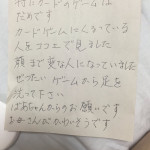 特にカードのゲームは
だめです
カードゲームにくるっている
人をココエで見ました
顔まで変な人になっていました
ぜったい ゲームから足を
洗って下さい
ばあちゃんからのお願いです
さんがかわいそうです